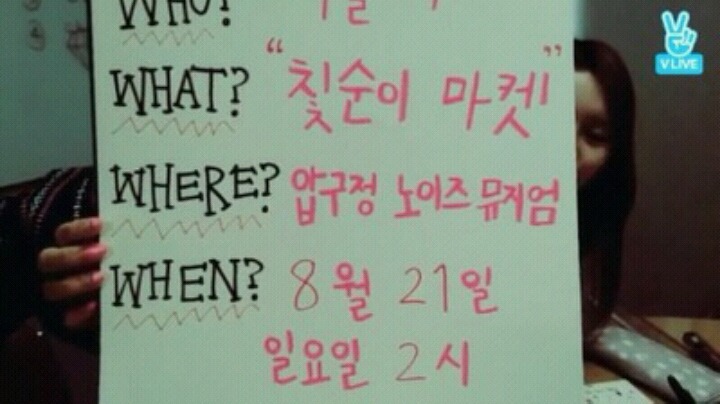 WHO?
V LIVE
WHAT? "칫순이 마켓"
WHERE? 압구정 노이즈 뮤지엄
WHEN? 8월 21일
일요일 2시